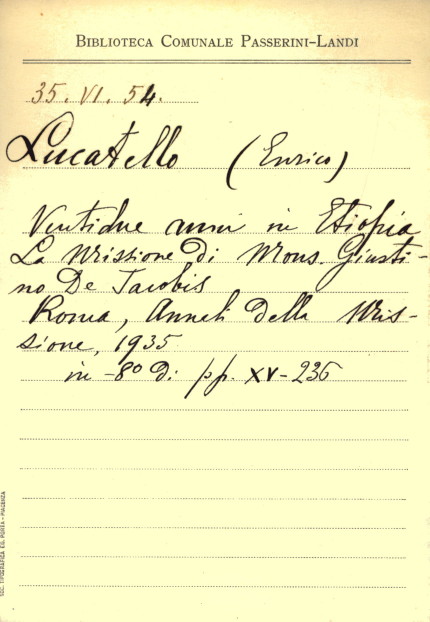 BIBLIOTECA COMUNALE PASSERINI-LANDI
35. VI. 54.
Lucatello (Enrico)
Ventidue anni in Etiopia
La Missione di Mons. Giusti-
no De Jacobis
Roma, Annali della Mis-
sione, 1935
in -8° di pp. XV-236
SOC. TIPOGRAFICA ED. PORTA - PIACENZA